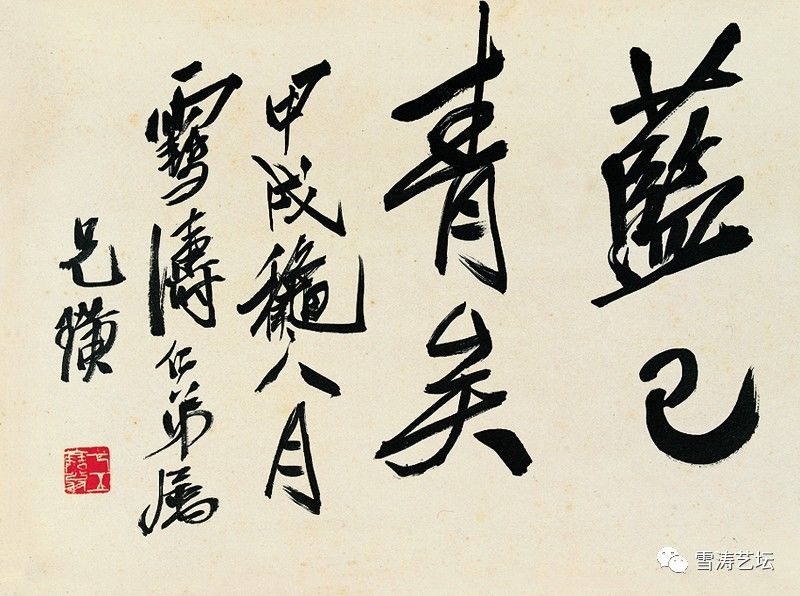 藍已
青矣
甲戌龝八月
雪濤仁弟屬
兄璜
雪涛艺坛